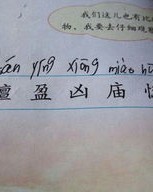 我们这儿也有比
物。我要去仔细观察
yíng xiōng miào
檀 盈 凶 庙